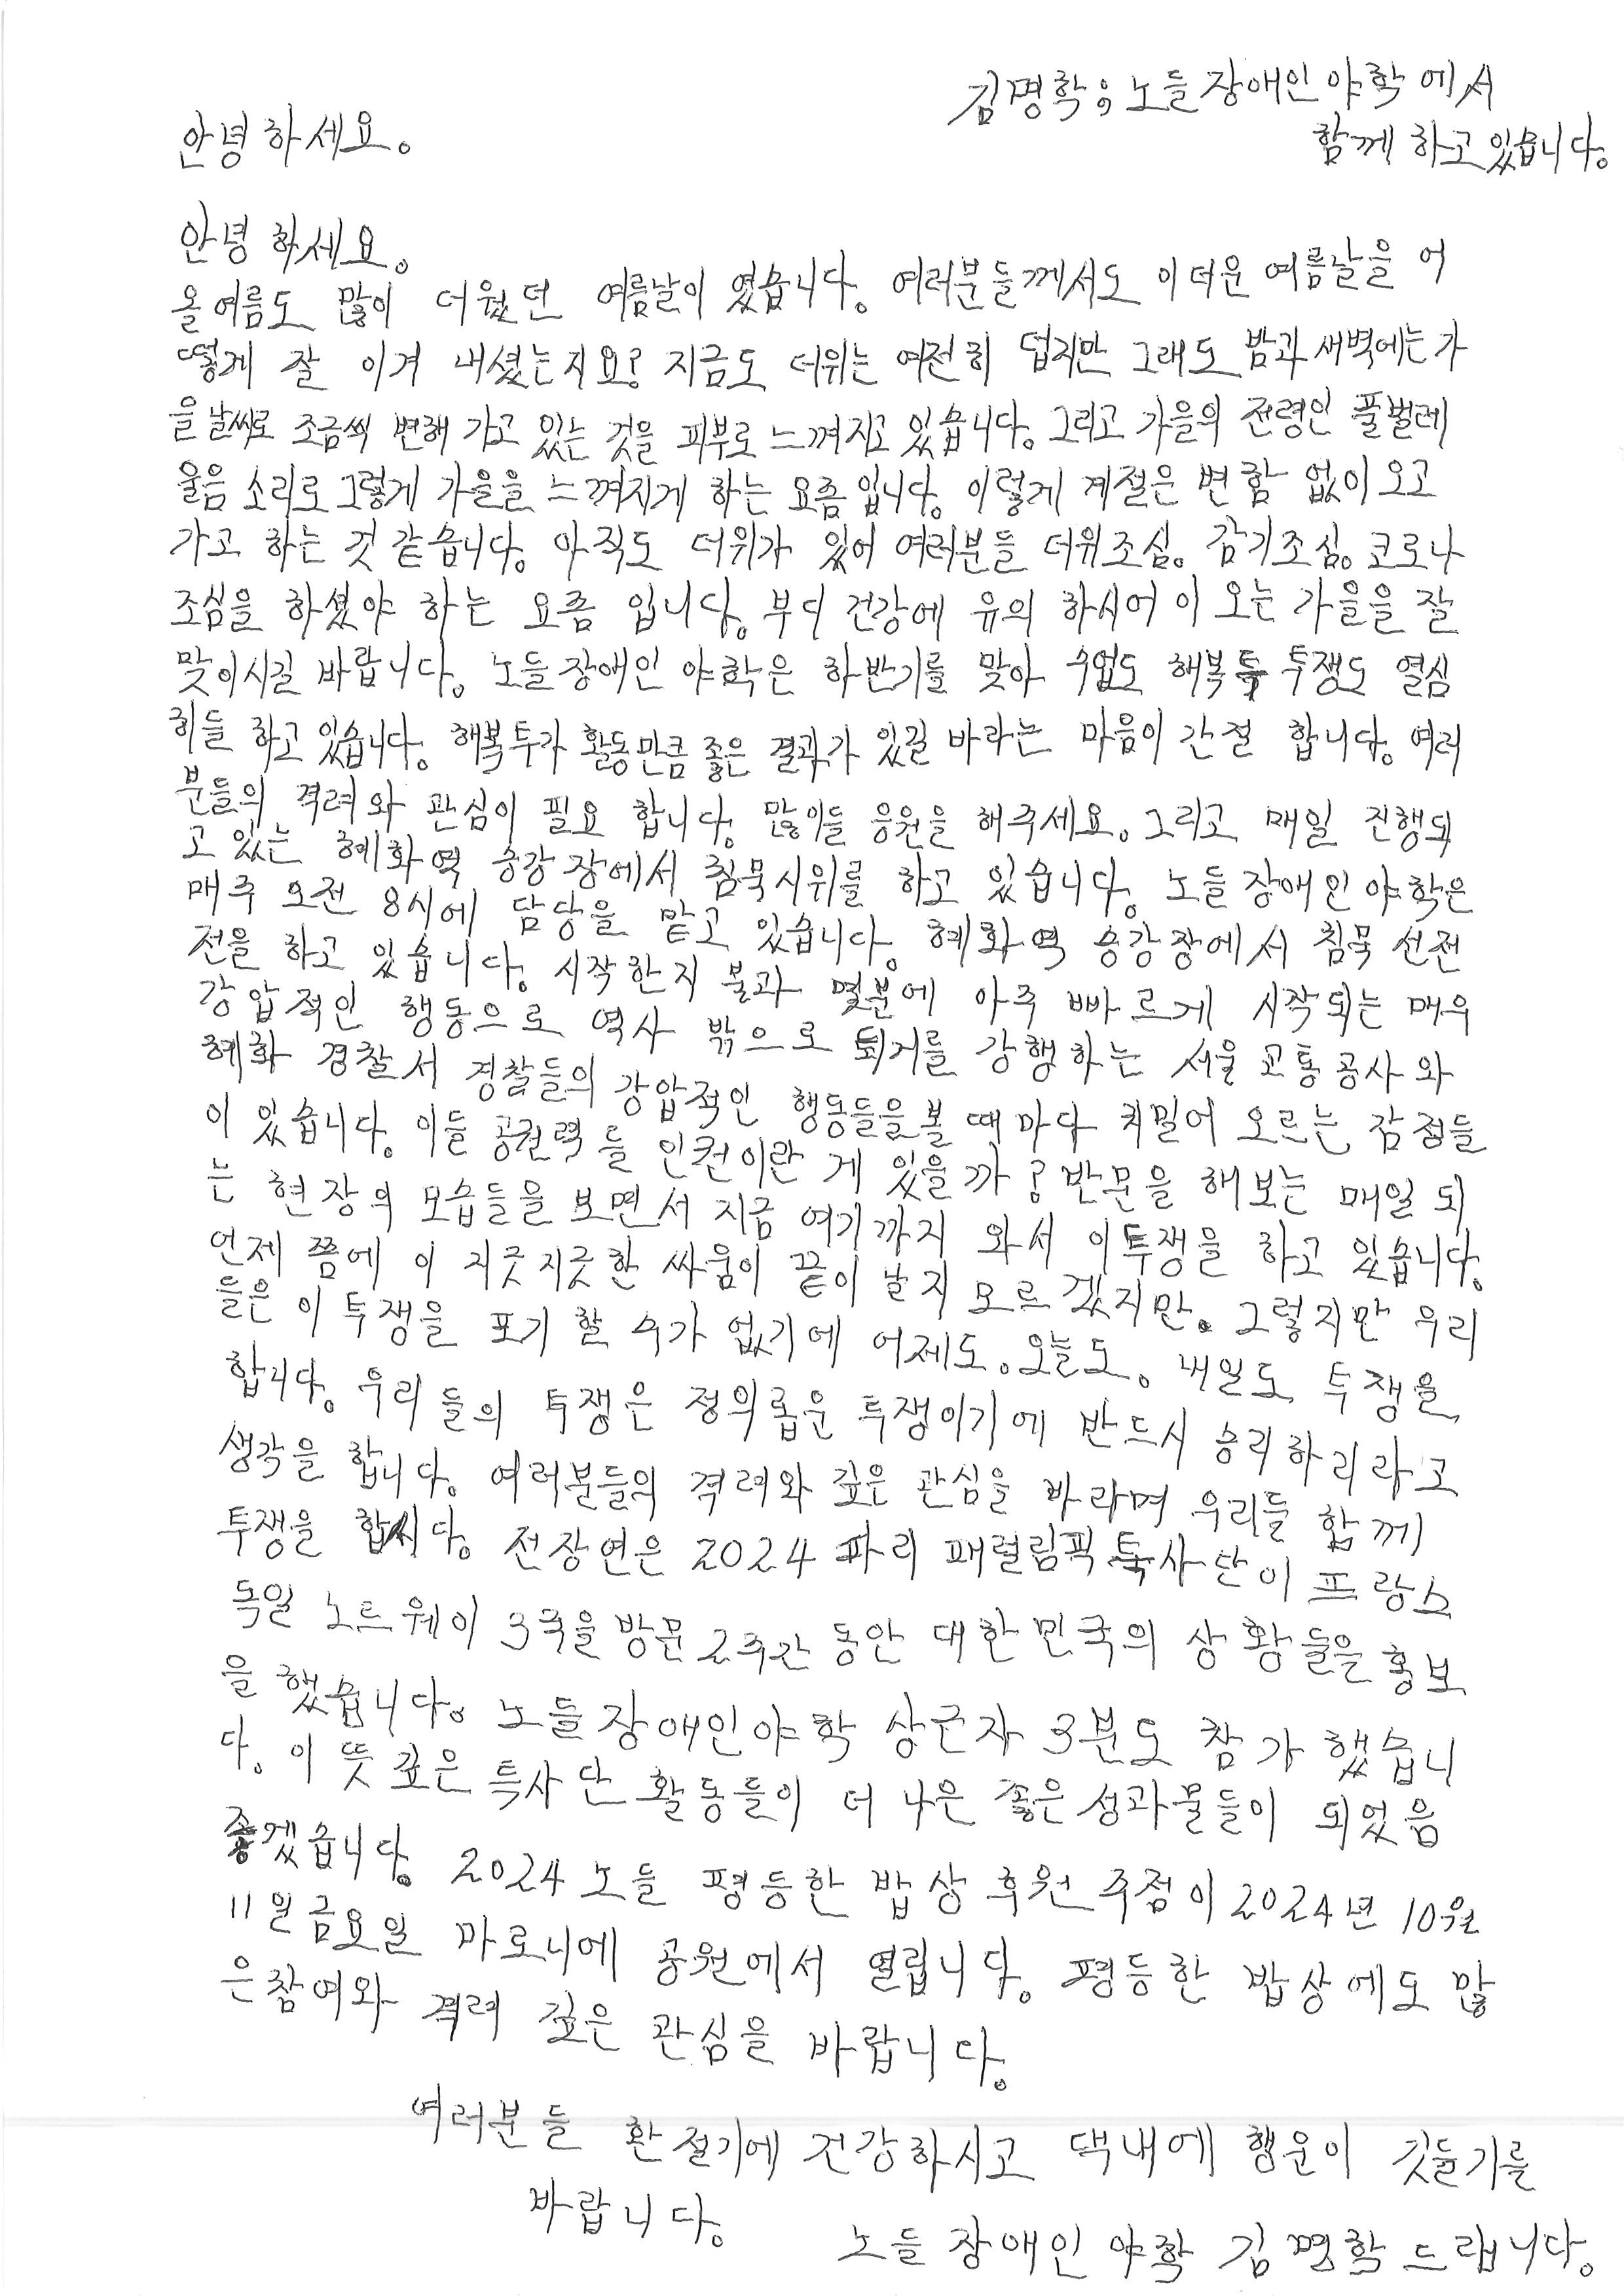 김명학; 노들장애인야학에서
함께 하고 있습니다.
안녕하세요.
안녕하세요.
올여름도 많이 더웠던 여름날이 였습니다. 여러분들께서도 이더운 여름날을 어
떻게 잘 이겨 내셨는지요? 지금도 더위는 여전히 덥지만 그래도 밤과 새벽에는 가
을날씨로 조금씩 변해 가고 있는 것을 피부로 느껴지고 있습니다. 그리고 가을의 전령인 풀벌레
울음 소리로 그렇게 가을을 느껴지게 하는 요즘입니다. 이렇게 계절은 변함 없이 오고
가고 하는 것 같습니다. 아직도 더위가 있어 여러분들 더위조심. 감기조심. 코로나
조심을 하셨야 하는 요즘 입니다. 부디 건강에 유의 하시어 이 오는 가을을 잘
맞이시길 바랍니다. 노들장애인 야학은 하반기를 맞아 수업도 해복투 투쟁도 열심
히들 하고 있습니다. 해복투가 활동만큼 좋은 결과가 있길 바라는 마음이 간절 합니다. 여러
분들의 격려와 관심이 필요 합니다. 많이들 응원을 해주세요. 그리고 매일 진행되
고 있는 혜화역 승강장에서 침묵시위를 하고 있습니다. 노들장애인야학은
매주 오전 8시에 담당을 맡고 있습니다. 혜화역 승강장에서 침묵 선전
전을 하고 있습니다. 시작한지 불과 몇분에 아주 빠르게 시작되는 매우
강압적인 행동으로 역사 밖으로 퇴거를 강행하는 서울교통공사와
혜화 경찰서 경찰들의 강압적인 행동들을볼 때마다 치밀어 오르는 감정들
이 있습니다. 이들 공권력 들 인권이란 게 있을까? 반문을 해보는 매일 되
는 현장의 모습들을 보면서 지금 여기까지 와서 이투쟁을 하고 있습니다.
언제 쯤에 이 지긋지긋한 싸움이 끝이 날지 모르겠지만. 그렇지만 우리
들은 이 투쟁을 포기 할 수가 없기에 어제도. 오늘도. 내일도 투쟁을
합니다. 우리 들의 투쟁은 정의롭운 투쟁이기에 반드시 승리하리라고
생각을 합니다. 여러분들의 격려와 깊은 관심을 바라며 우리들 함께
투쟁을 합시다. 전장연은 2024 파리 패럴림픽 특사단이 프랑스
독일 노르웨이 3국을 방문 2주간 동안 대한민국의 상황들을 홍보
을 했습니다. 노들장애인야학 상근자 3분도 참가 했습니
다. 이 뜻 깊은 특사단 활동들이 더 나은 좋은성과물들이 되었음
좋겠습니다. 2024 노들 평등한 밥상 후원 주점이 2024년 10월
11일 금요일 마로니에 공원에서 열립니다. 평등한 밥상에도 많
은참여와 격려 깊은 관심을 바랍니다.
여러분들 환절기에 건강하시고 댁내에 행운이 깃들기를
바랍니다.
노들 장애인 야학 김명학 드립니다.